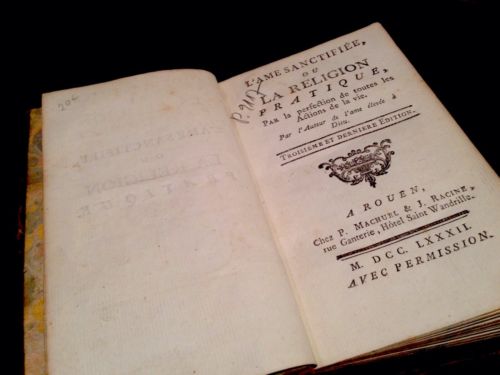 20f
P. 9117
L'AME SANCTIFIÉE,
OU
LA RELIGION
PRATIQUE,
PAR la perfection de toutes les
Actions de la vie.
Par l'Auteur de l'ame élevée à
Dieu.
TROISIEME ET DERNIERE EDITION.
A ROUEN,
Chez P. MACHUEL & J. RACINE,
rue Ganterie, Hôtel Saint Wandrille.
M. DCC. LXXXII.
AVEC PERMISSION.